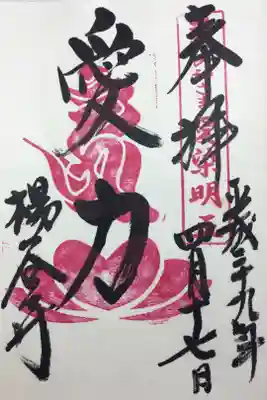 奉拝
平成二十九年
四月十七日
愛力
楊谷寺